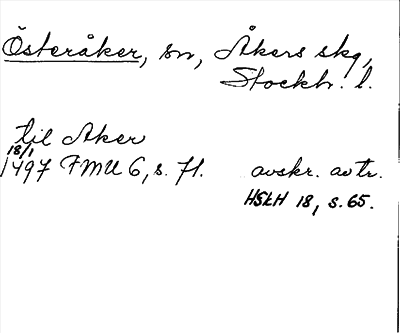 Österåker, sn, Åkers skg,
Stockh. l.
til Aker
18/1
1497 FMU 6, s. 71. avskr. avtr.
HSLH 18, s. 65.